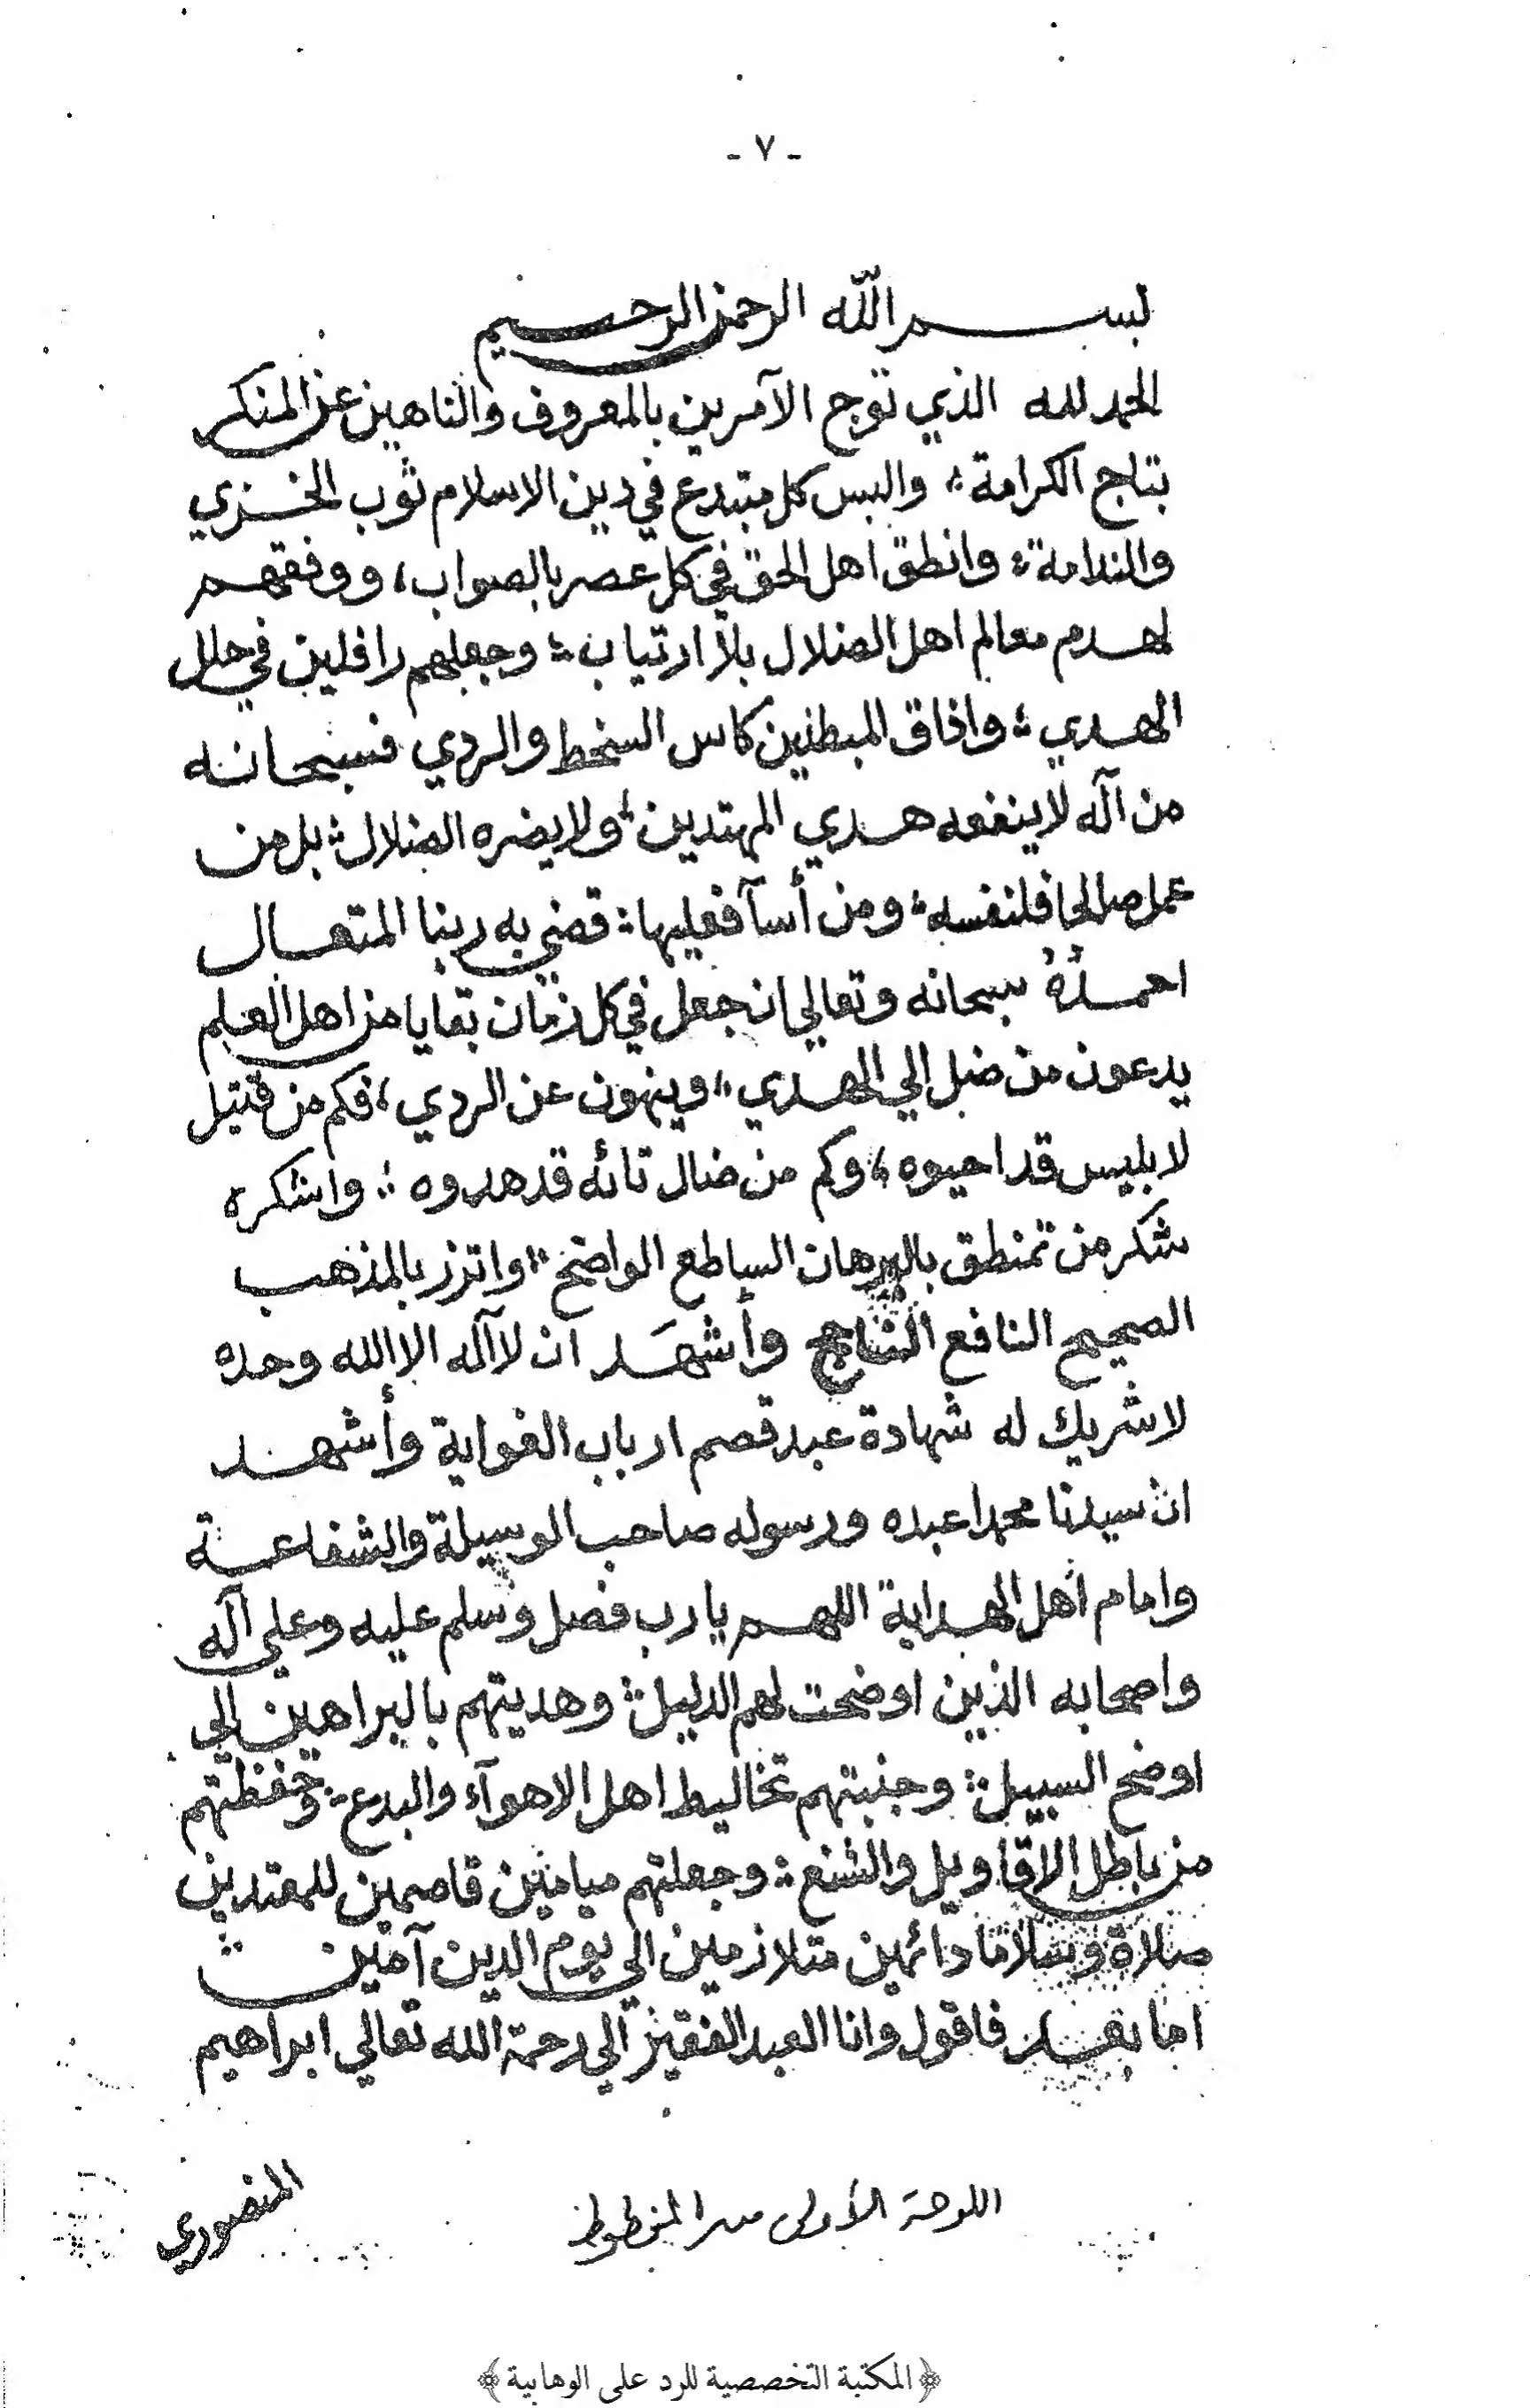 - ٧ -
بسم الله الرحمن الرحيم
الحمد لله الذي توج الآمرين بالمعروف والناهين عن المنكر
بتاج الكرامة؛ والبس كل مبتدع في دين الاسلام ثوب الخزي
والندامة؛ وانطق اهل الحق في كل عصر بالصواب، ووفقهم
لهدم معالم اهل الضلال بلا ارتياب؛ وجعلهم رافلين في حلل
الهدي؛ واذاق المبطلين كاس السخط والردي فسبحانه
من آله لا ينفعه هدي المهتدين؛ ولا يضره الضلال؛ بل من
عمل صالحا فلنفسه؛ ومن أسآ فعليها؛ قضي به ربنا المتعال
احمدُهُ سبحانه وتعالي ان جعل في كل زمان بقايا من اهل العلم
يدعون من ضل الي الهدي، وينهون عن الردي، فكم من قتيل
لابليس قد احيوه، وكم من ضال تائه قد هدوه؛ واشكره
شكر من تمنطق بالبرهان الساطع الواضح؛ واتزر بالمذهب
الصحيح النافع الناجح وأشهَد ان لاآله الا الله وحده
لا شريك له شهادة عبد قصم ارباب الغواية وأشهد
ان سيدنا محمدا عبده ورسوله صاحب الوسيلة والشفاعة
وامام اهل الهداية اللهم يارب فصل وسلم عليه وعلي آله
واصحابه الذين اوضحت لهم الدليل؛ وهديتهم بالبراهين الي
اوضح السبيل؛ وجنبتهم تخاليط اهل الاهوآء والبدع؛ وحفظتهم
من باطل الاقاويل والشنع؛ وجعلتهم ميامين قاصمين للمعتدين
صلاة وسلاما دائمين متلازمين الي يوم الدين آمين
اما بعد فاقول وانا العبد الفقير الي رحمة الله تعالي ابراهيم
المنصوري
اللوحة الأولى من المخطوط
﴿المكتبة التخصصية للرد على الوهابية﴾